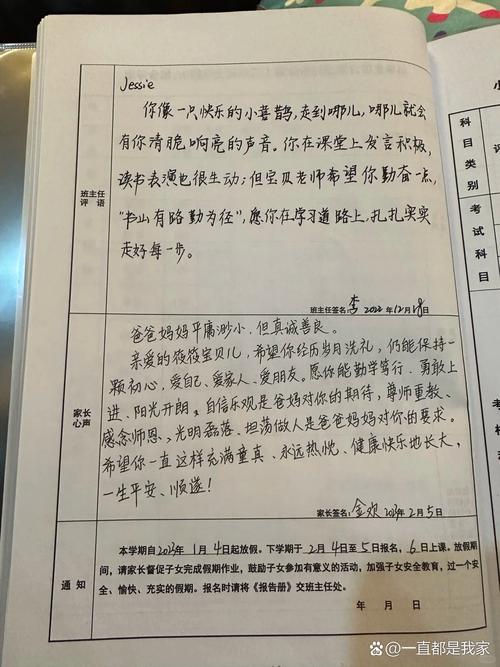 Jessie
你像一只快乐的小喜鹊,走到哪儿,哪儿就会
有你清脆响亮的声音。你在课堂上发言积极,
读书表演也很生动;但宝贝老师希望你勤奋一点,
“书山有路勤为径”,愿你在学习道路上,扎扎实实
走好每一步。
班主任
评 语
班主任签名:李 2022年12月 日
爸爸妈妈平庸渺小,但真诚善良。
亲爱的筱筱宝贝儿,希望你经历岁月洗礼,仍能保持一
颗初心,爱自己、爱家人、爱朋友。愿你能勤学笃行、勇敢上
进、阳光开朗。自信乐观是爸妈对你的期待,尊师重教、
感念师恩、光明磊落、坦荡做人是爸爸妈妈对你的要求。
希望你一直这样充满童真、永远热忱、健康快乐地长大,
一生平安、顺遂!
家长
心声
家长签名:金欢 2023年2月5日
通 知
本学期自2023年1月4日起放假。下学期于2月4日至5日报名,6日上课。放假期
间,请家长督促子女完成假期作业,鼓励子女参加有意义的活动,加强子女安全教育,过一个安
全、愉快、充实的假期。报名时请将《报告册》交班主任处。
年 月 日
小
科
目
类
别
评
考
试
科
目
考
一直都是我家